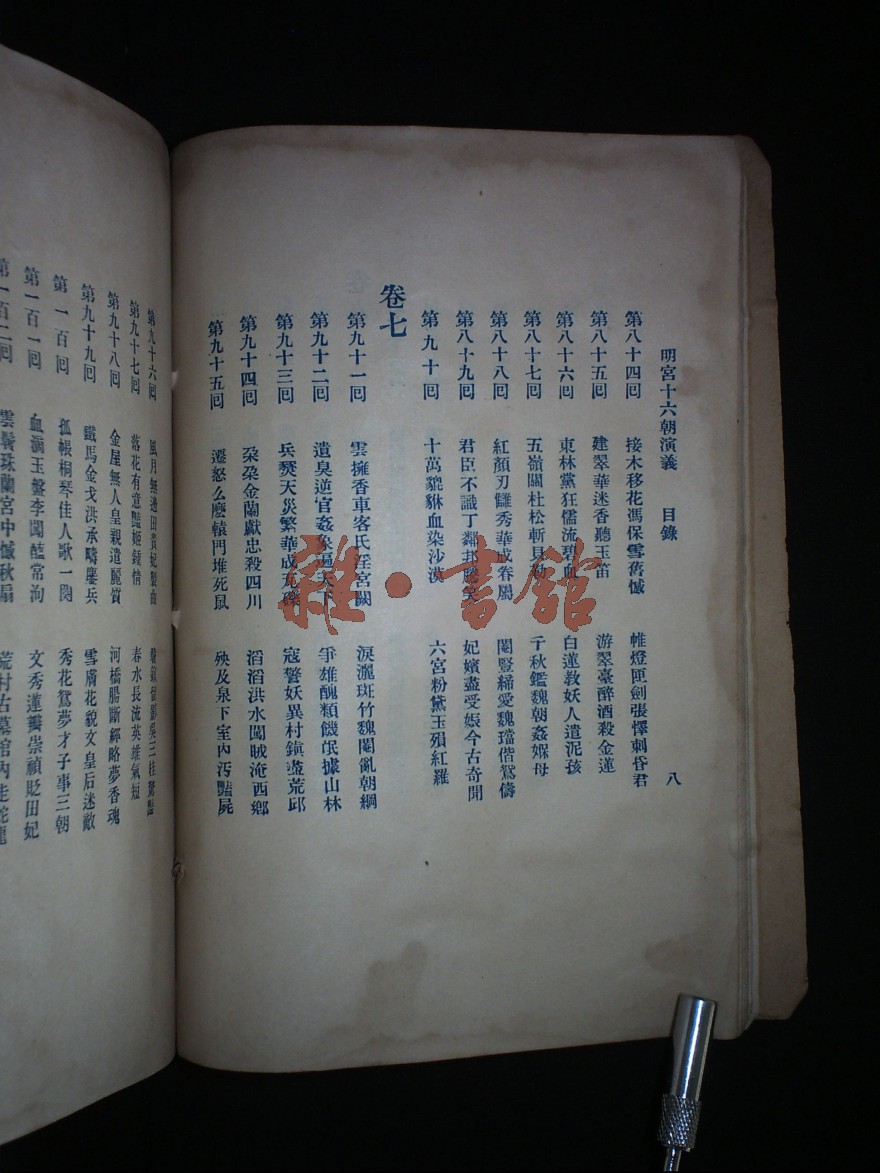 明宮十六朝演義 目錄 八
第八十四回 接木移花馮保雪舊憾 帷燈匣劍張懌刺昏君
第八十五回 建翠華迷香聽玉笛 游翠臺醉酒殺金蓮
第八十六回 東林黨狂儒流碧血 白蓮教妖人遣泥孩
第八十七回 五嶺關杜松斬貝勒 千秋鑑魏朝姦媬母
第八十八回 紅顏刃讎秀華成眷屬 閹豎締愛魏璫偕鴛儔
第八十九回 君臣不識丁鄰邦騰笑 妃嬪盡受娠今古奇聞
第九十回 十萬貔貅血染沙漠 六宮粉黛玉殞紅羅
卷七
第九十一回 雲擁香車客氏淫宮闕 淚灑斑竹魏閹亂朝綱
第九十二回 遺臭逆宦姦象遍天下 爭雄醜類饑氓據山林
第九十三回 兵燹天災繁華成瓦礫 寇警妖異村鎮盡荒邱
第九十四回 朶朶金蘭獻忠殺四川 滔滔洪水闖賊淹西鄉
第九十五回 遷怒么麽轅門堆死鼠 殃及泉下室內污豔屍
第九十六回 風月無邊田貴妃製曲 吳三桂驚豔
第九十七回 落花有意豔姬鍾情 春水長流英雄氣短
第九十八回 金屋無人皇親遣麗質 河橋腸斷經略夢香魂
第九十九回 鐵馬金戈洪承疇鏖兵 雪膚花貌文皇后迷敵
第一百回 孤帳桐琴佳人歌一闋 秀花鴛夢才子事三朝
第一百一回 血濺玉盤李闖醢常洵 文秀蓮瓣崇禎貶田妃
第一百二回 雲鬢珠蘭宮中憾秋扇 荒村古墓棺內走蛇龍
雜·書館